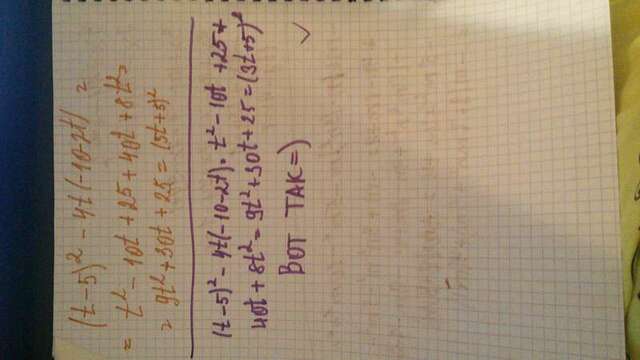 (t-5)² - 4t(-10-2t) =
= t² - 10t + 25 + 40t + 8t² =
= 9t² + 30t + 25 = (3t+5)²
(t-5)² - 4t(-10-2t) = t² - 10t + 25 +
40t + 8t² = 9t² + 30t + 25 = (3t+5)²
ВОТ ТАК=)